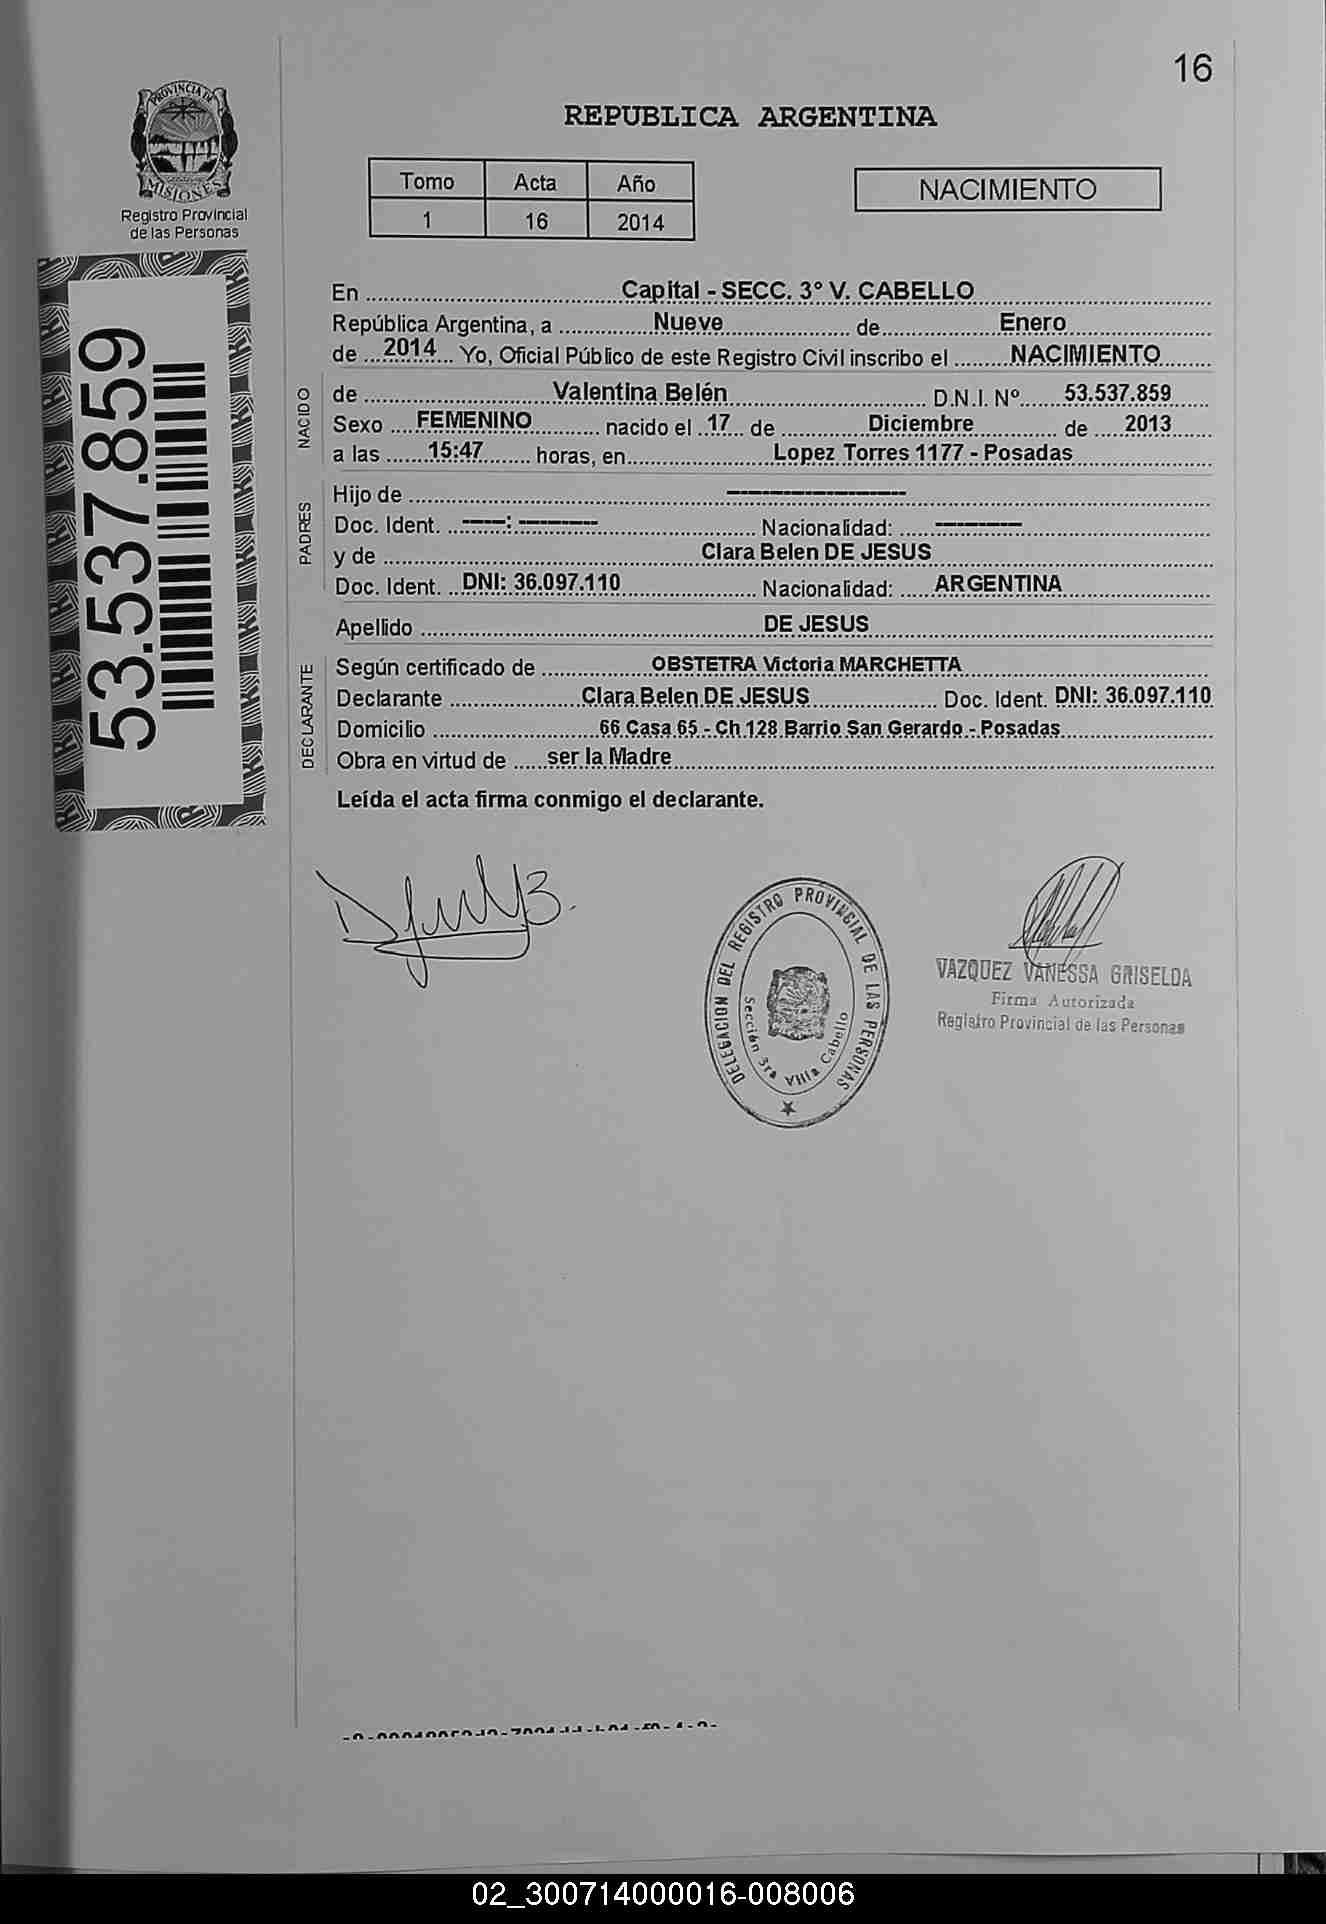 16
PROVINCIA DE
MISIONES
Registro Provincial
de las Personas
REPUBLICA ARGENTINA
Tomo Acta Año
1 16 2014
NACIMIENTO
53.537.859
En Capital - SECC. 3° V. CABELLO
República Argentina, a Nueve de Enero
de 2014 Yo, Oficial Público de este Registro Civil inscribo el NACIMIENTO
NACIDO
de Valentina Belén D.N.I. Nº 53.537.859
Sexo FEMENINO nacido el 17 de Diciembre de 2013
a las 15:47 horas, en Lopez Torres 1177 - Posadas
PADRES
Hijo de --------------------
Doc. Ident. -----: --------- Nacionalidad: ----------
y de Clara Belen DE JESUS
Doc. Ident. DNI: 36.097.110 Nacionalidad: ARGENTINA
Apellido DE JESUS
DECLARANTE
Según certificado de OBSTETRA Victoria MARCHETTA
Declarante Clara Belen DE JESUS Doc. Ident. DNI: 36.097.110
Domicilio 66 Casa 65 - Ch 128 Barrio San Gerardo - Posadas
Obra en virtud de ser la Madre
Leída el acta firma conmigo el declarante.
DELEGACION DEL REGISTRO PROVINCIAL DE LAS PERSONAS
Sección 3ra Villa Cabello
VAZQUEZ VANESSA GRISELDA
Firma Autorizada
Registro Provincial de las Personas
02_300714000016-008006